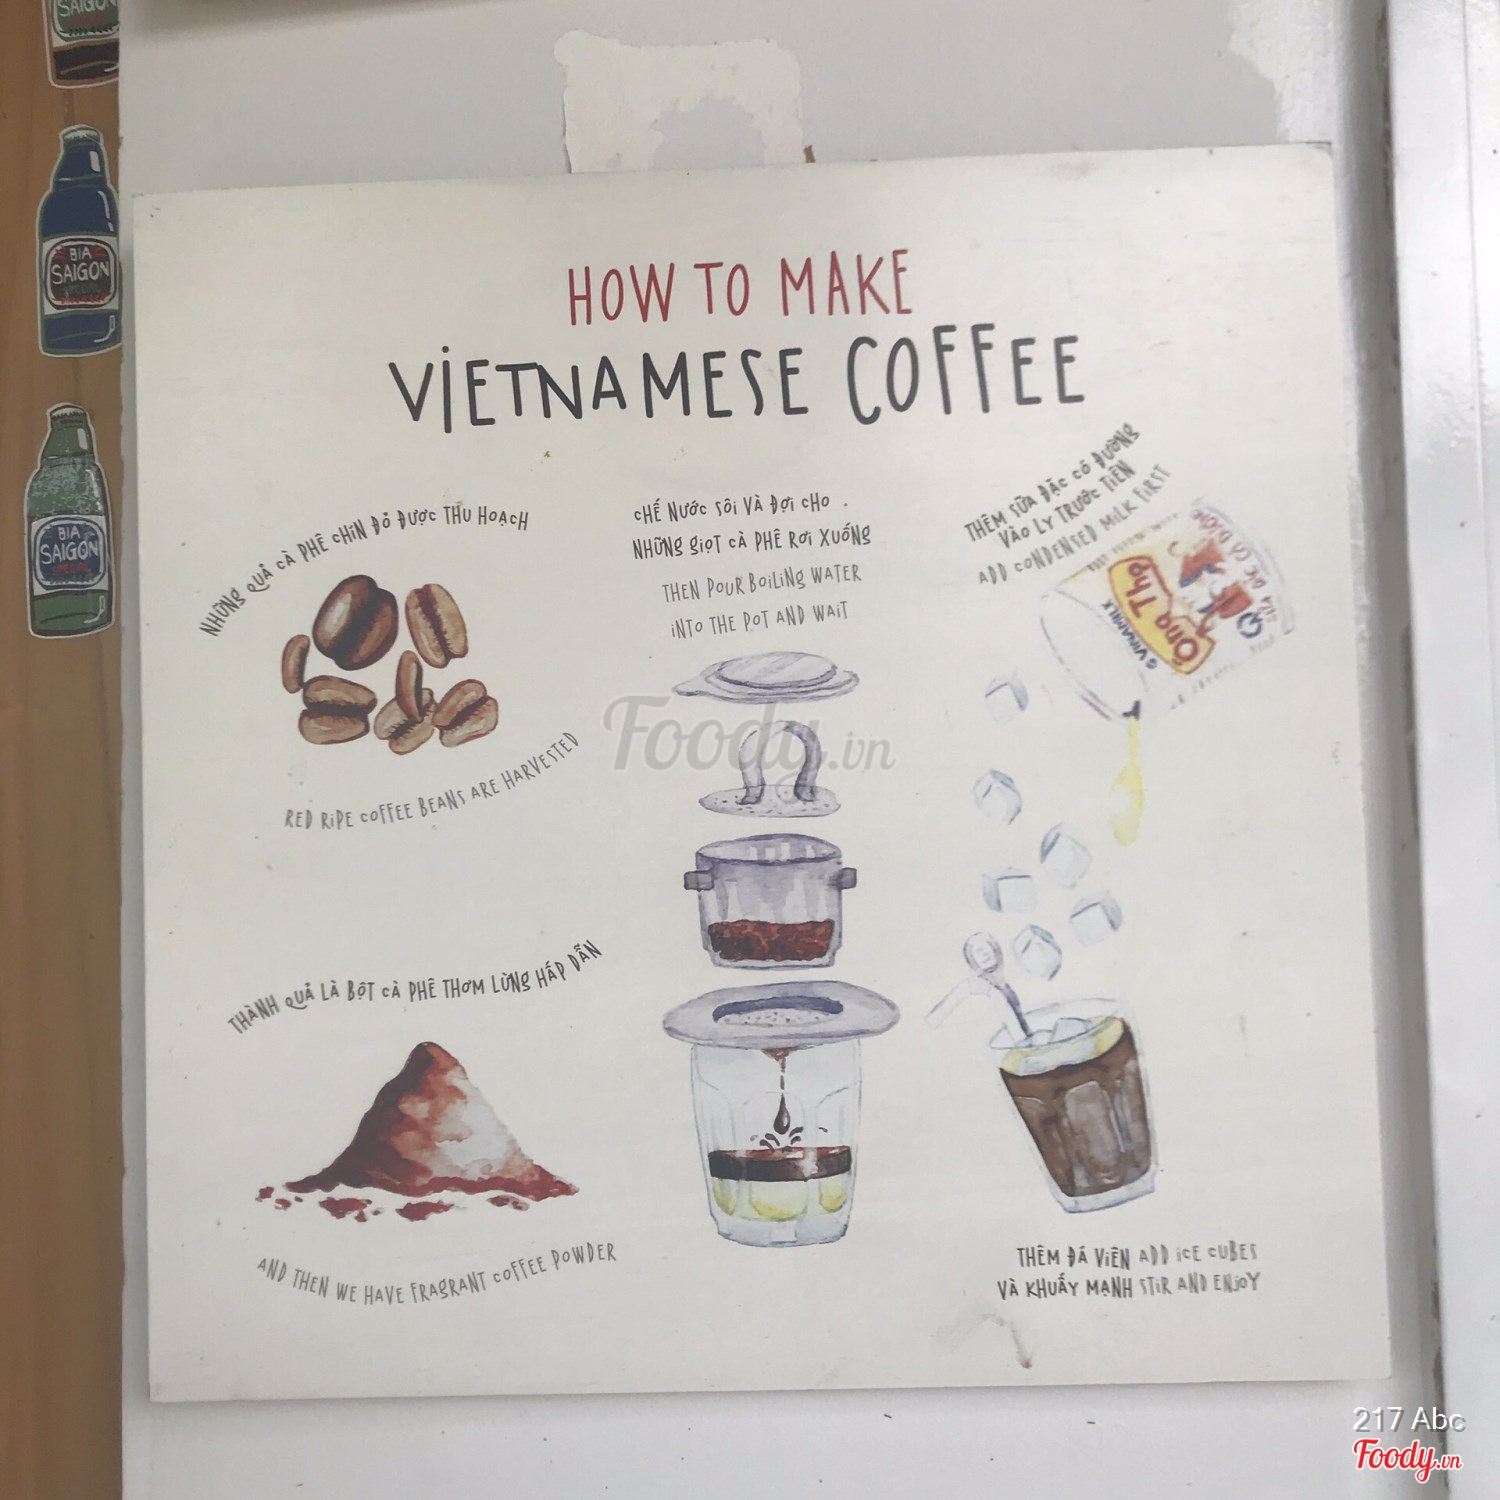 HOW TO MAKE
VIETNAMESE COFFEE
NHỮNG QUẢ CÀ PHÊ CHÍN ĐỎ ĐƯỢC THU HOẠCH
RED RIPE COFFEE BEANS ARE HARVESTED
THÀNH QUẢ LÀ BỘT CÀ PHÊ THƠM LỪNG HẤP DẪN
AND THEN WE HAVE FRAGRANT COFFEE POWDER
CHẾ NƯỚC SÔI VÀ ĐỢI CHO
NHỮNG GIỌT CÀ PHÊ RƠI XUỐNG
THEN POUR BOILING WATER
INTO THE POT AND WAIT
THÊM SỮA ĐẶC CÓ ĐƯỜNG
VÀO LY TRƯỚC TIÊN
ADD CONDENSED MILK FIRST
Ông Thọ
VINAMILK
THÊM ĐÁ VIÊN ADD ICE CUBES
VÀ KHUẤY MẠNH STIR AND ENJOY
SAIGON
BIA
SAIGON
SPECIAL
BIA
SAIGON
SPECIAL
Foody.vn
217 Abc
Foody.vn